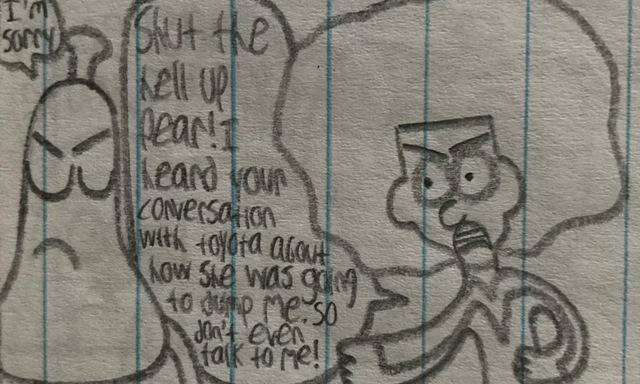 I'm
sorry
Shut the
hell up
pear! I
heard your
conversation
with toyota about
how she was going
to dump me. so
don't even
talk to me!